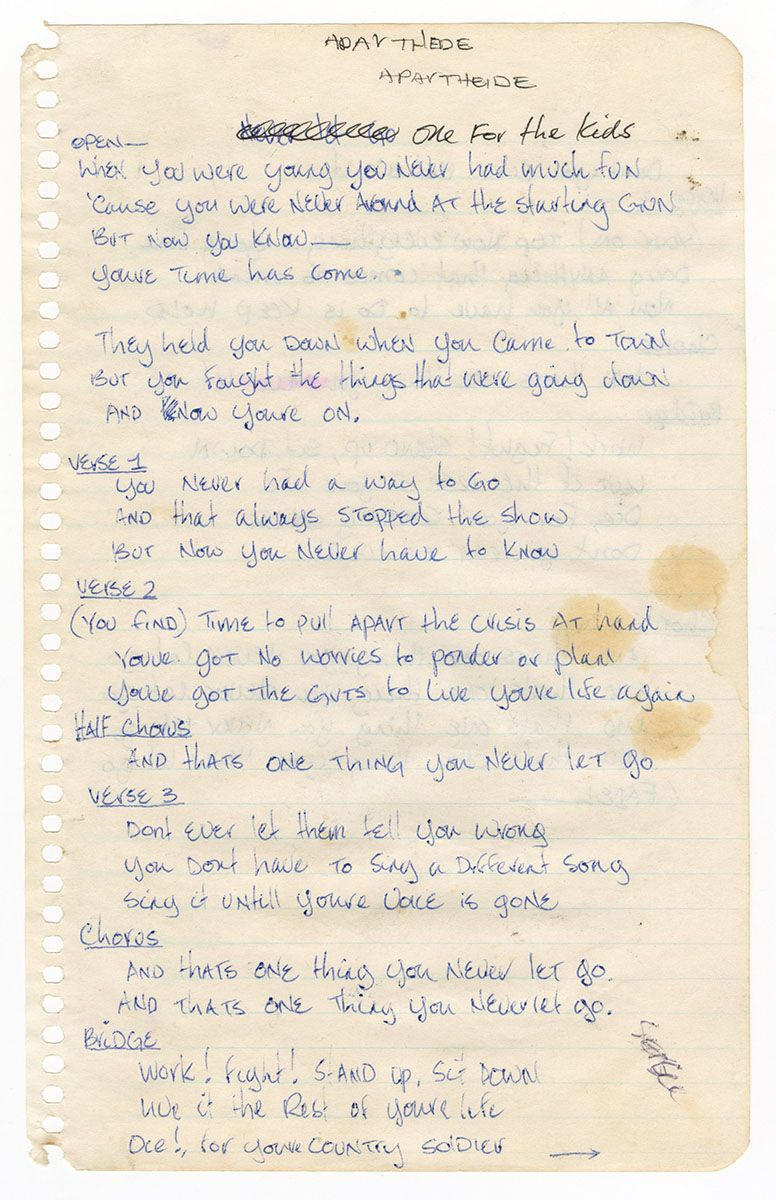 ADARTHEDE
APARTHEIDE
One For the Kids
OPEN—
When you were young you Never had much fun
'Cause you were Never Around At the starting Gun
But Now you know—
youre Time has come..
They held you Down when you Came to Town
But you Fought the things that were going down
AND Now youre on.
Verse 1
you Never had a way to Go
AND that always stopped the show
But Now you Never have to know
Verse 2
(You find) Time to pull APART the crisis At hand
Youve got No worries to ponder or plan
Youve got the Guts to live youre life again
Half Chorus
AND thats one thing you Never let go
Verse 3
Dont ever let them tell you wrong
you Dont have To Sing a Different Song
Sing it untill youre Voice is gone
Chorus
AND thats one thing you Never let go.
AND thats one Thing you Never let go.
Bridge
Work! Fight! Stand up, Sit Down
Live it the Rest of youre life
Die!, for youre Country Soldier →